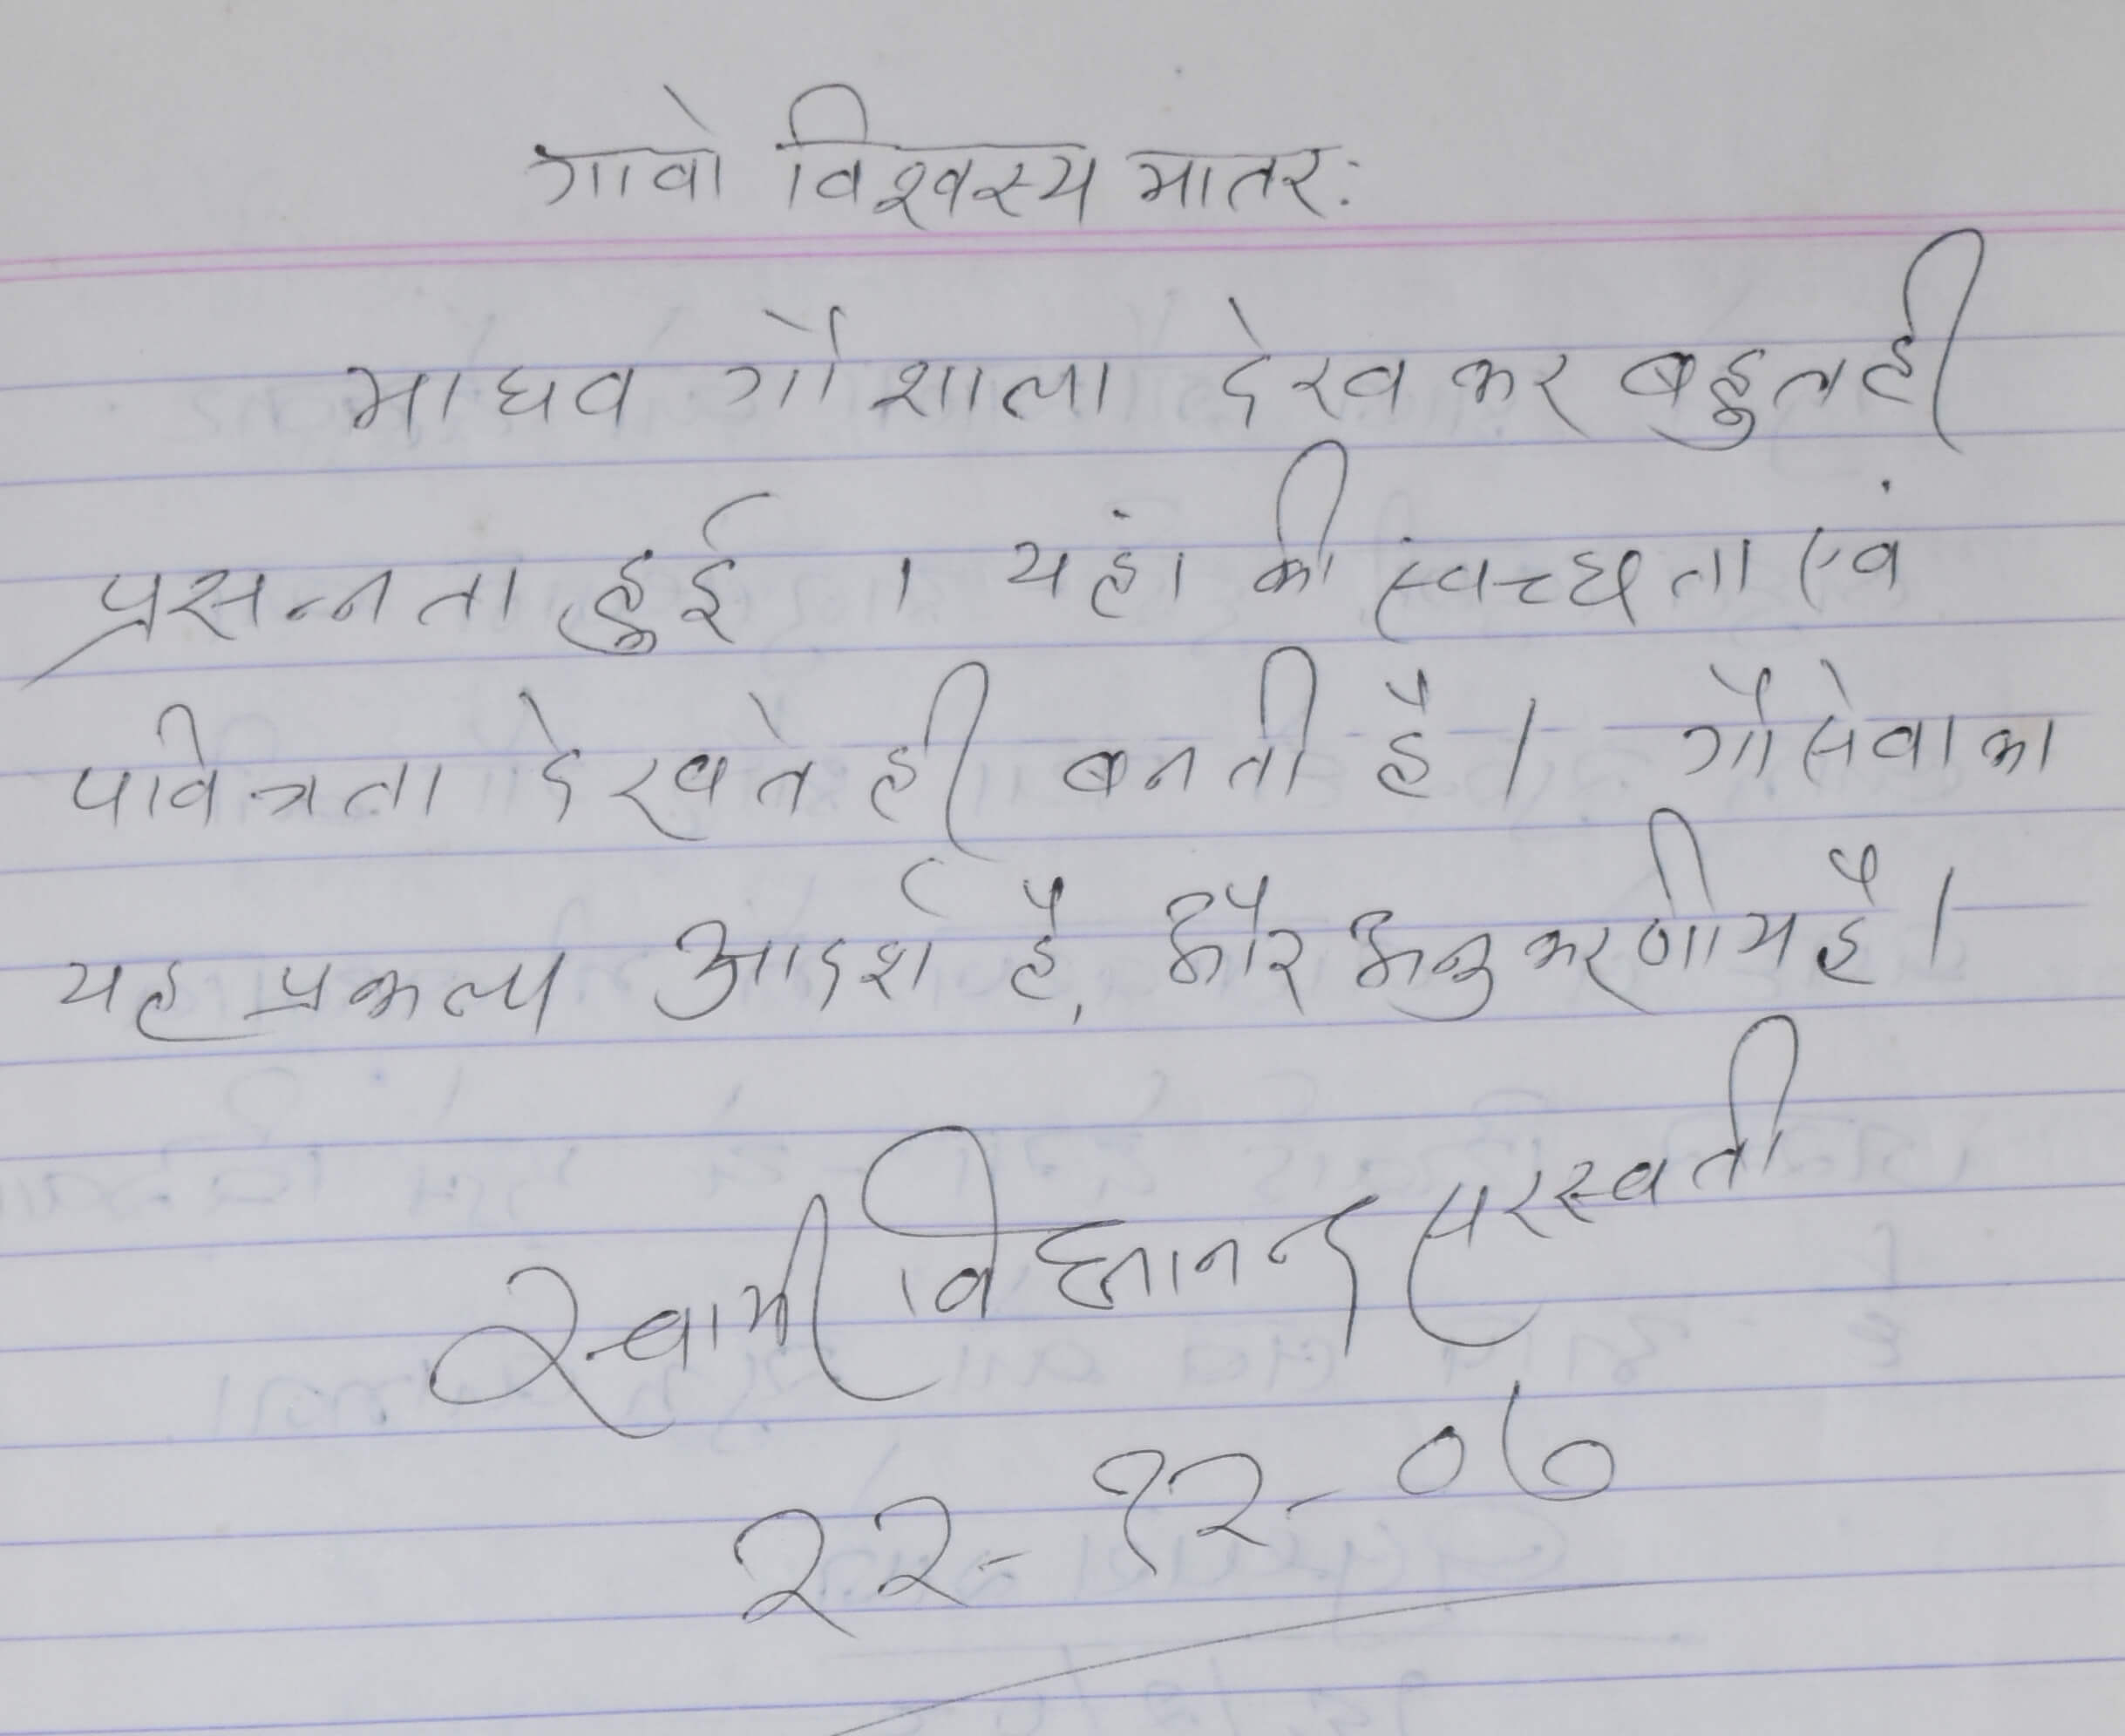 गावो विश्वस्य मातर:
माधव गौशाला देखकर बहुत ही
प्रसन्नता हुई । यहां की स्वच्छता एवं
पवित्रता देखते ही बनती है । गौसेवा का
यह प्रकल्प आदर्श है, और अनुकरणीय है ।
स्वामी विज्ञानानन्द सरस्वती
२२-१२-०७